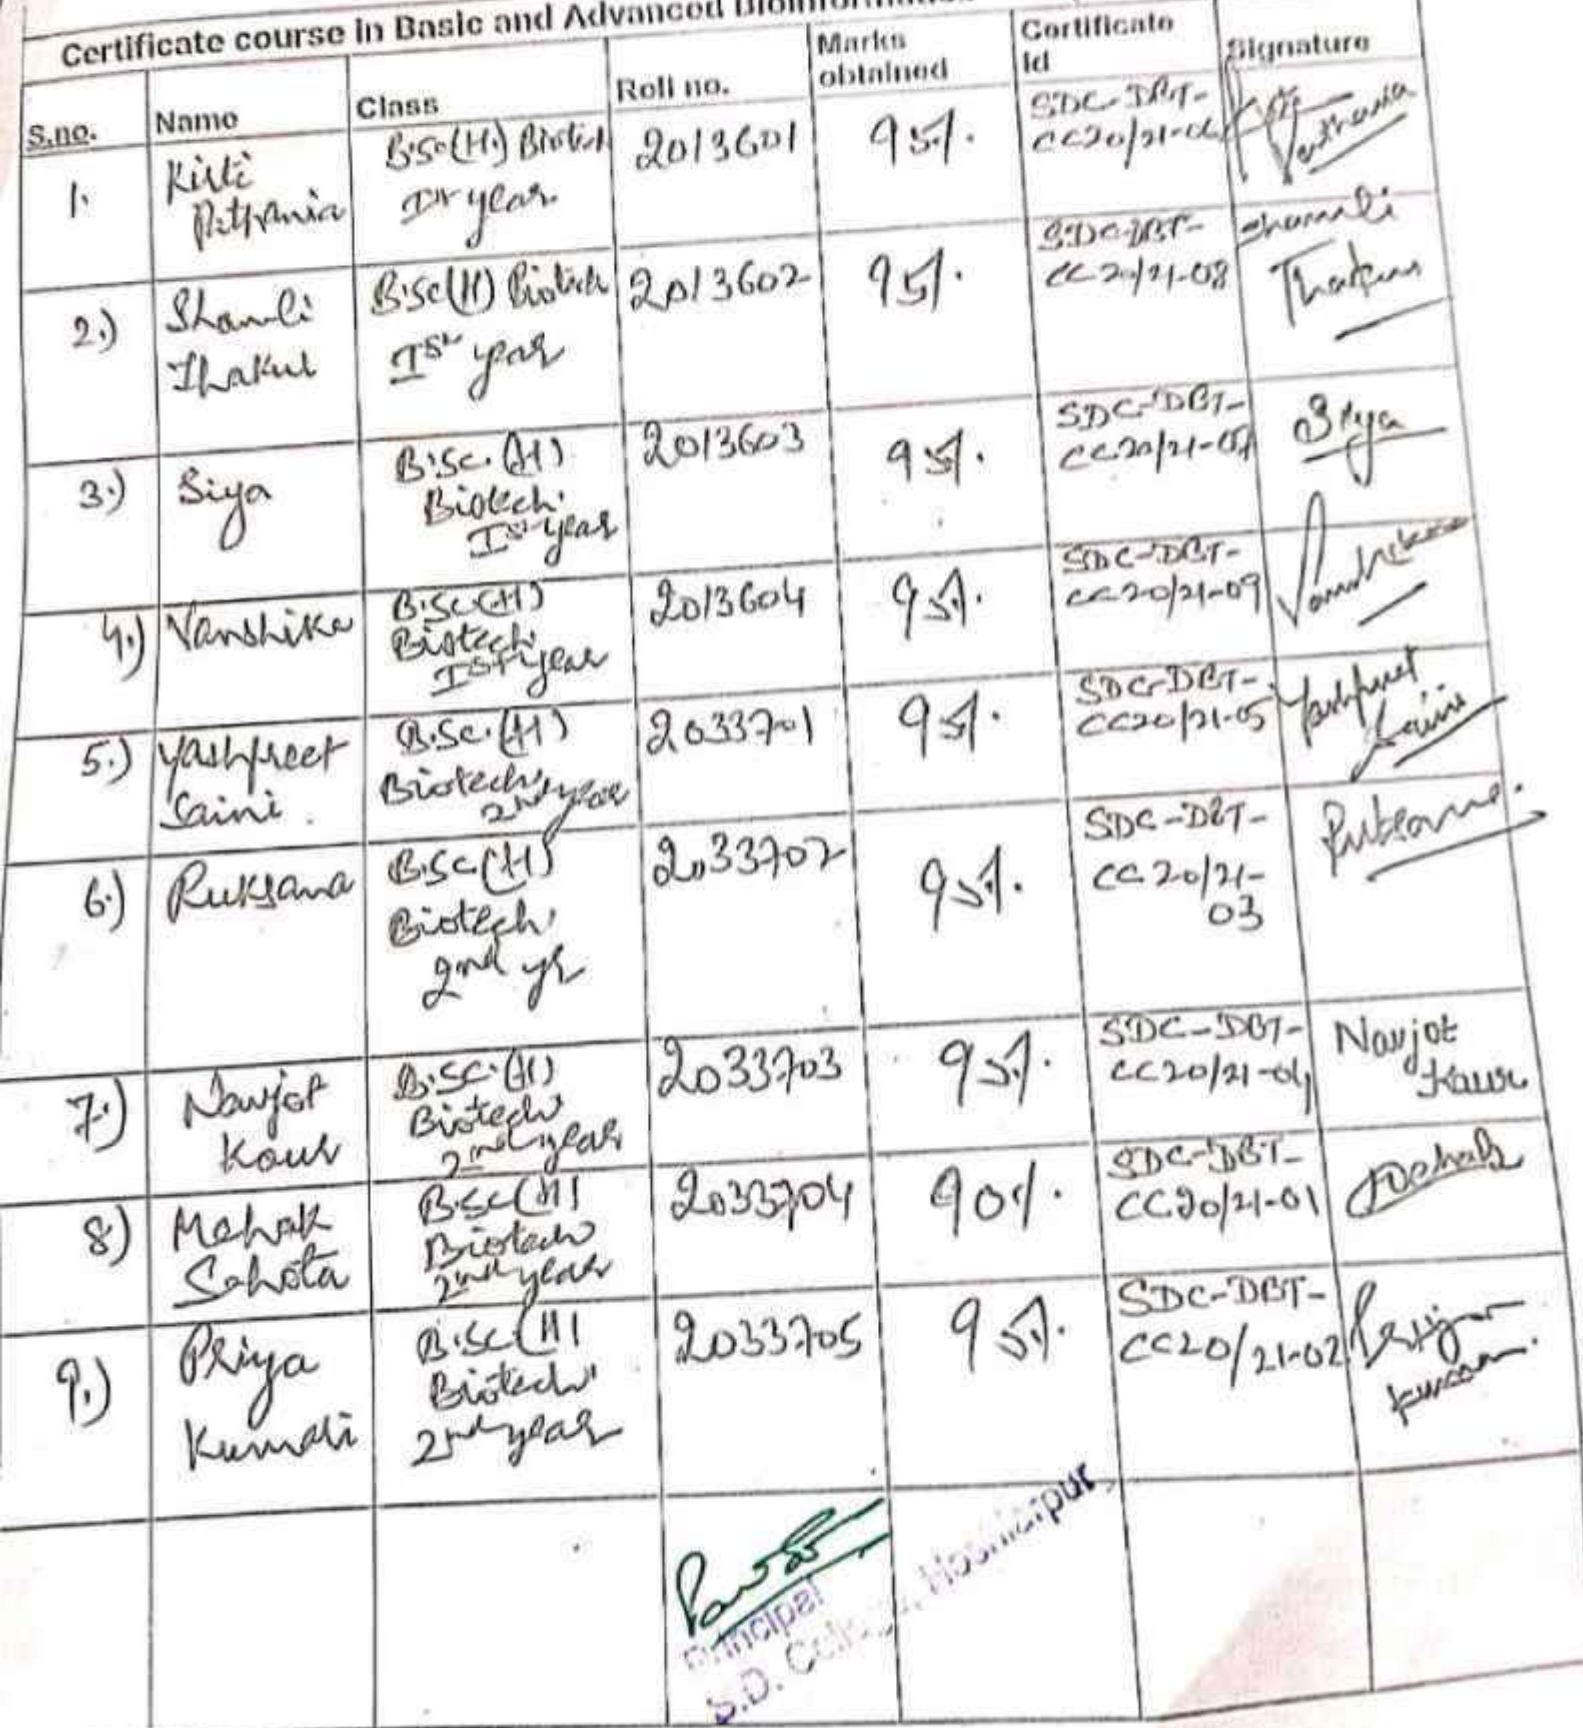 Certificate course in Basic and Advanced
S.no. Name Class Roll no. Marks obtained Certificate Id Signature
1. Kirti Pathania B.Sc(H.) Biotech Ist year 2013601 95%. SDC-DBT-CC20/21-06
2.) Shamli Thakur B.Sc(H) Biotech Ist year 2013602 95%. SDC-DBT-CC20/21-08 Shamli Thakur
3.) Siya B.Sc.(H) Biotech. Ist year 2013603 95%. SDC-DBT-CC20/21- Siya
4.) Vanshika B.Sc(H) Biotech. Ist year 2013604 95%. SDC-DBT-CC20/21-09 Vanshika
5.) Yashpreet Saini. B.Sc.(H) Biotech. 2nd year 2033701 95%. SDC-DBT-CC20/21-05 Yashpreet Saini
6.) Ruksana B.Sc(H) Biotech. 2nd yr 2033702 95%. SDC-DBT-CC20/21-03 Ruksana.
7.) Navjot Kaur B.Sc.(H) Biotech. 2nd year 2033703 95%. SDC-DBT-CC20/21-04 Navjot Kaur
8) Mehak Sahota B.Sc(H) Biotech 2nd year 2033704 90%. SDC-DBT-CC20/21-01
9.) Priya Kumari B.Sc(H) Biotech. 2nd year 2033705 95%. SDC-DBT-CC20/21-02 Priya Kumari
Principal
S.D. College, Hoshiarpur